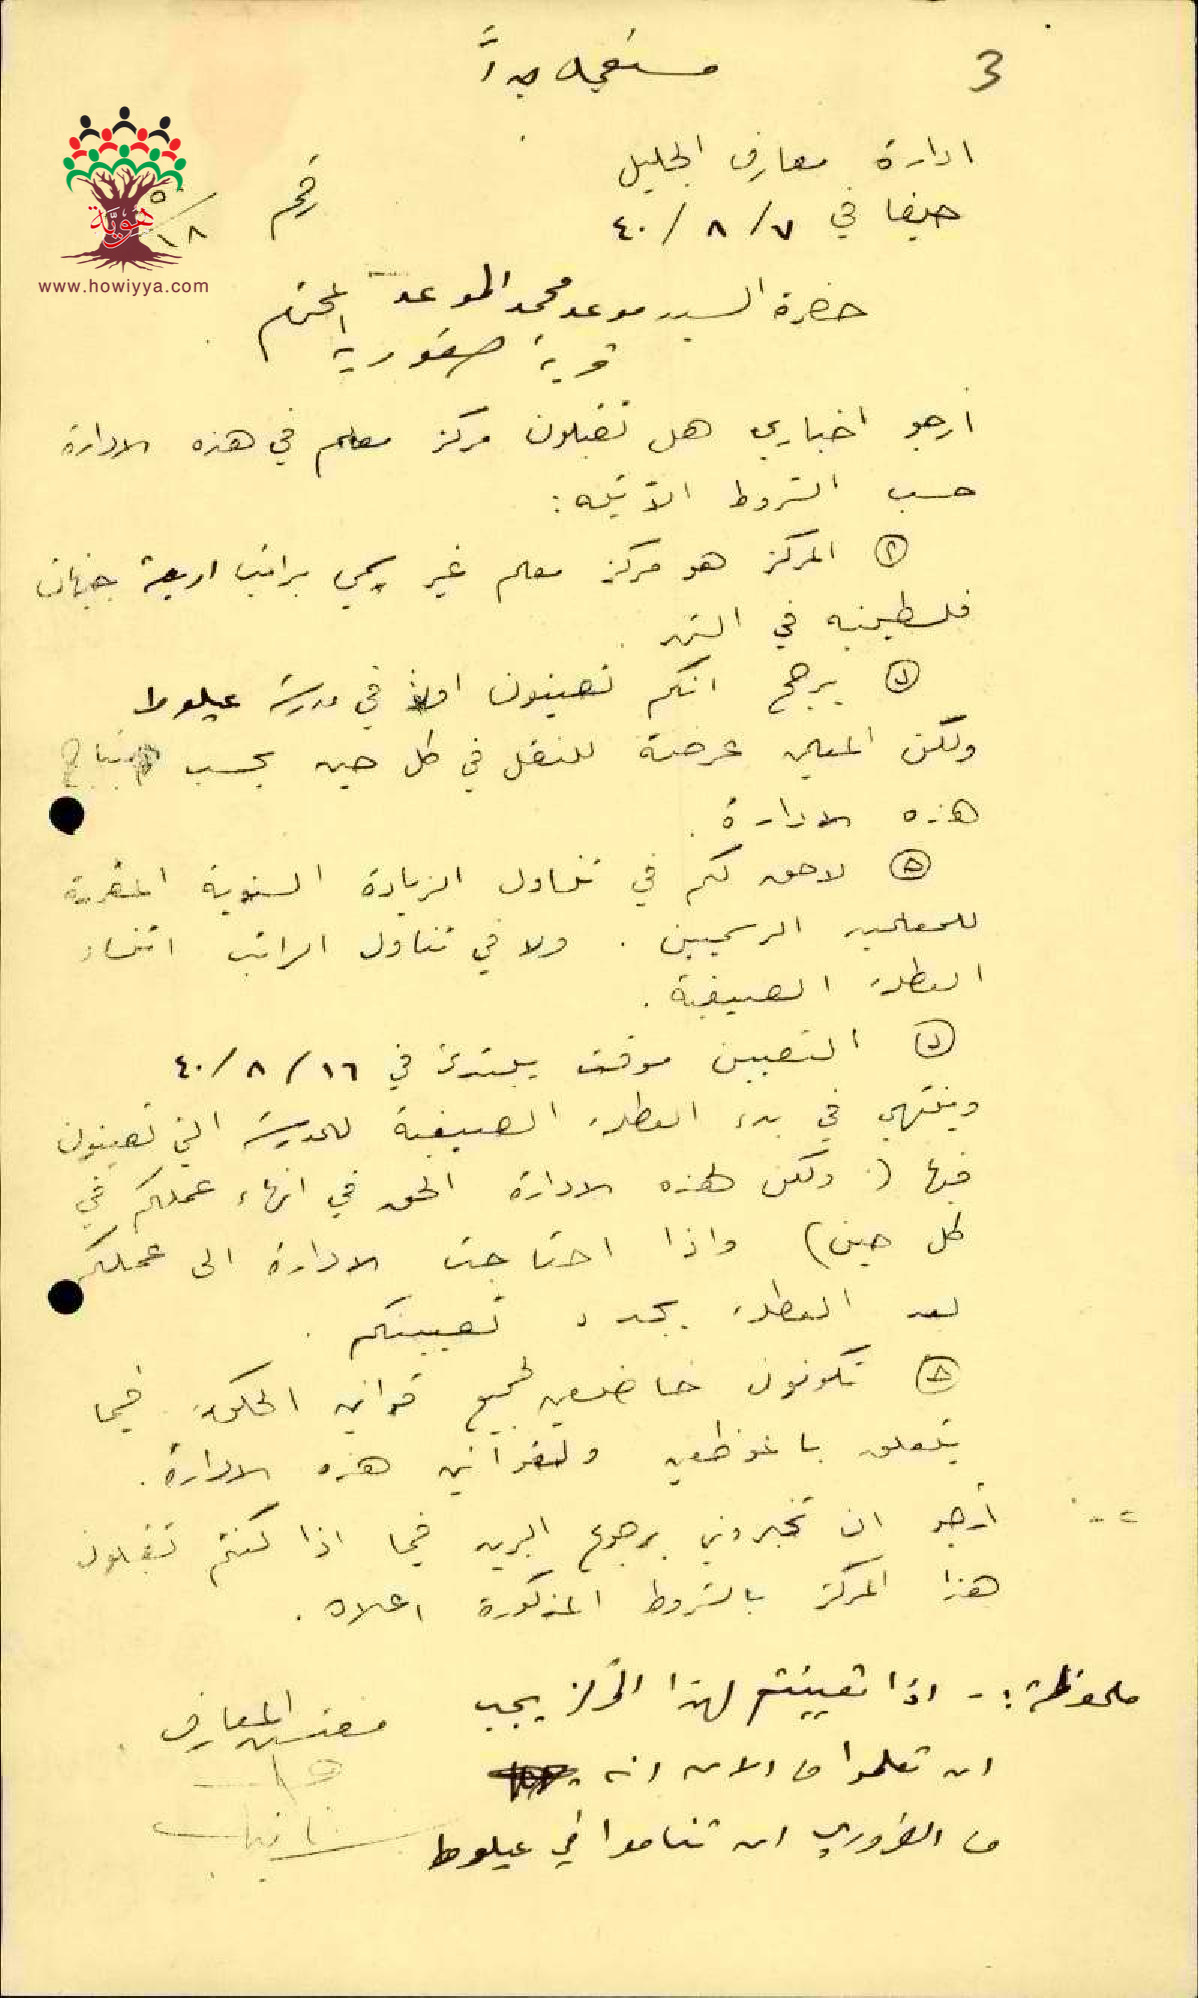 3
مستعجل جداً
ادارة معارف الجليل
حيفا في ٧/٨/٤٠
رقم ٥/١٨
هويّة
www.howiyya.com
حضرة السيد موعد محمد الموعد المحترم
قرية صفورية
أرجو اخباري هل تقبلون مركز معلم في هذه الادارة
حسب الشروط الآتيه:
المركز هو مركز معلم غير رسمي براتب اربعة جنيهات
فلسطينيه في الشهر
يرجح انكم تعينون اولاً في مدرسة عيلوط
ولكن المعلمين عرضة للنقل في كل حين بحسب
هذه الادارة.
لا حق لكم في تناول الزيادة السنوية المقررة
للمعلمين الرسميين. ولا في تناول الراتب اثناء
العطلة الصيفية.
التعيين موقت يبتدئ في ١٦/٨/٤٠
وينتهي في بدء العطلة الصيفية للمدرسة التي تعينون
فيها (ولكن لهذه الادارة الحق في انهاء عملكم في
كل حين) واذا احتاجت الادارة الى عملكم
بعد العطلة يجدد تعيينكم.
تكونون خاضعين لجميع قوانين الحكومة فيما
يتعلق بالموظفين ولقوانين هذه الادارة.
٢- أرجو ان تخبروني برجوع البريد فيما اذا كنتم تقبلون
هذا المركز بالشروط المذكورة اعلاه.
ملحوظة:- اذا تعينتم لهذا المركز يجب
ان تعلموا من الان انه
من الضروري ان تناموا في عيلوط
مفتش المعارف